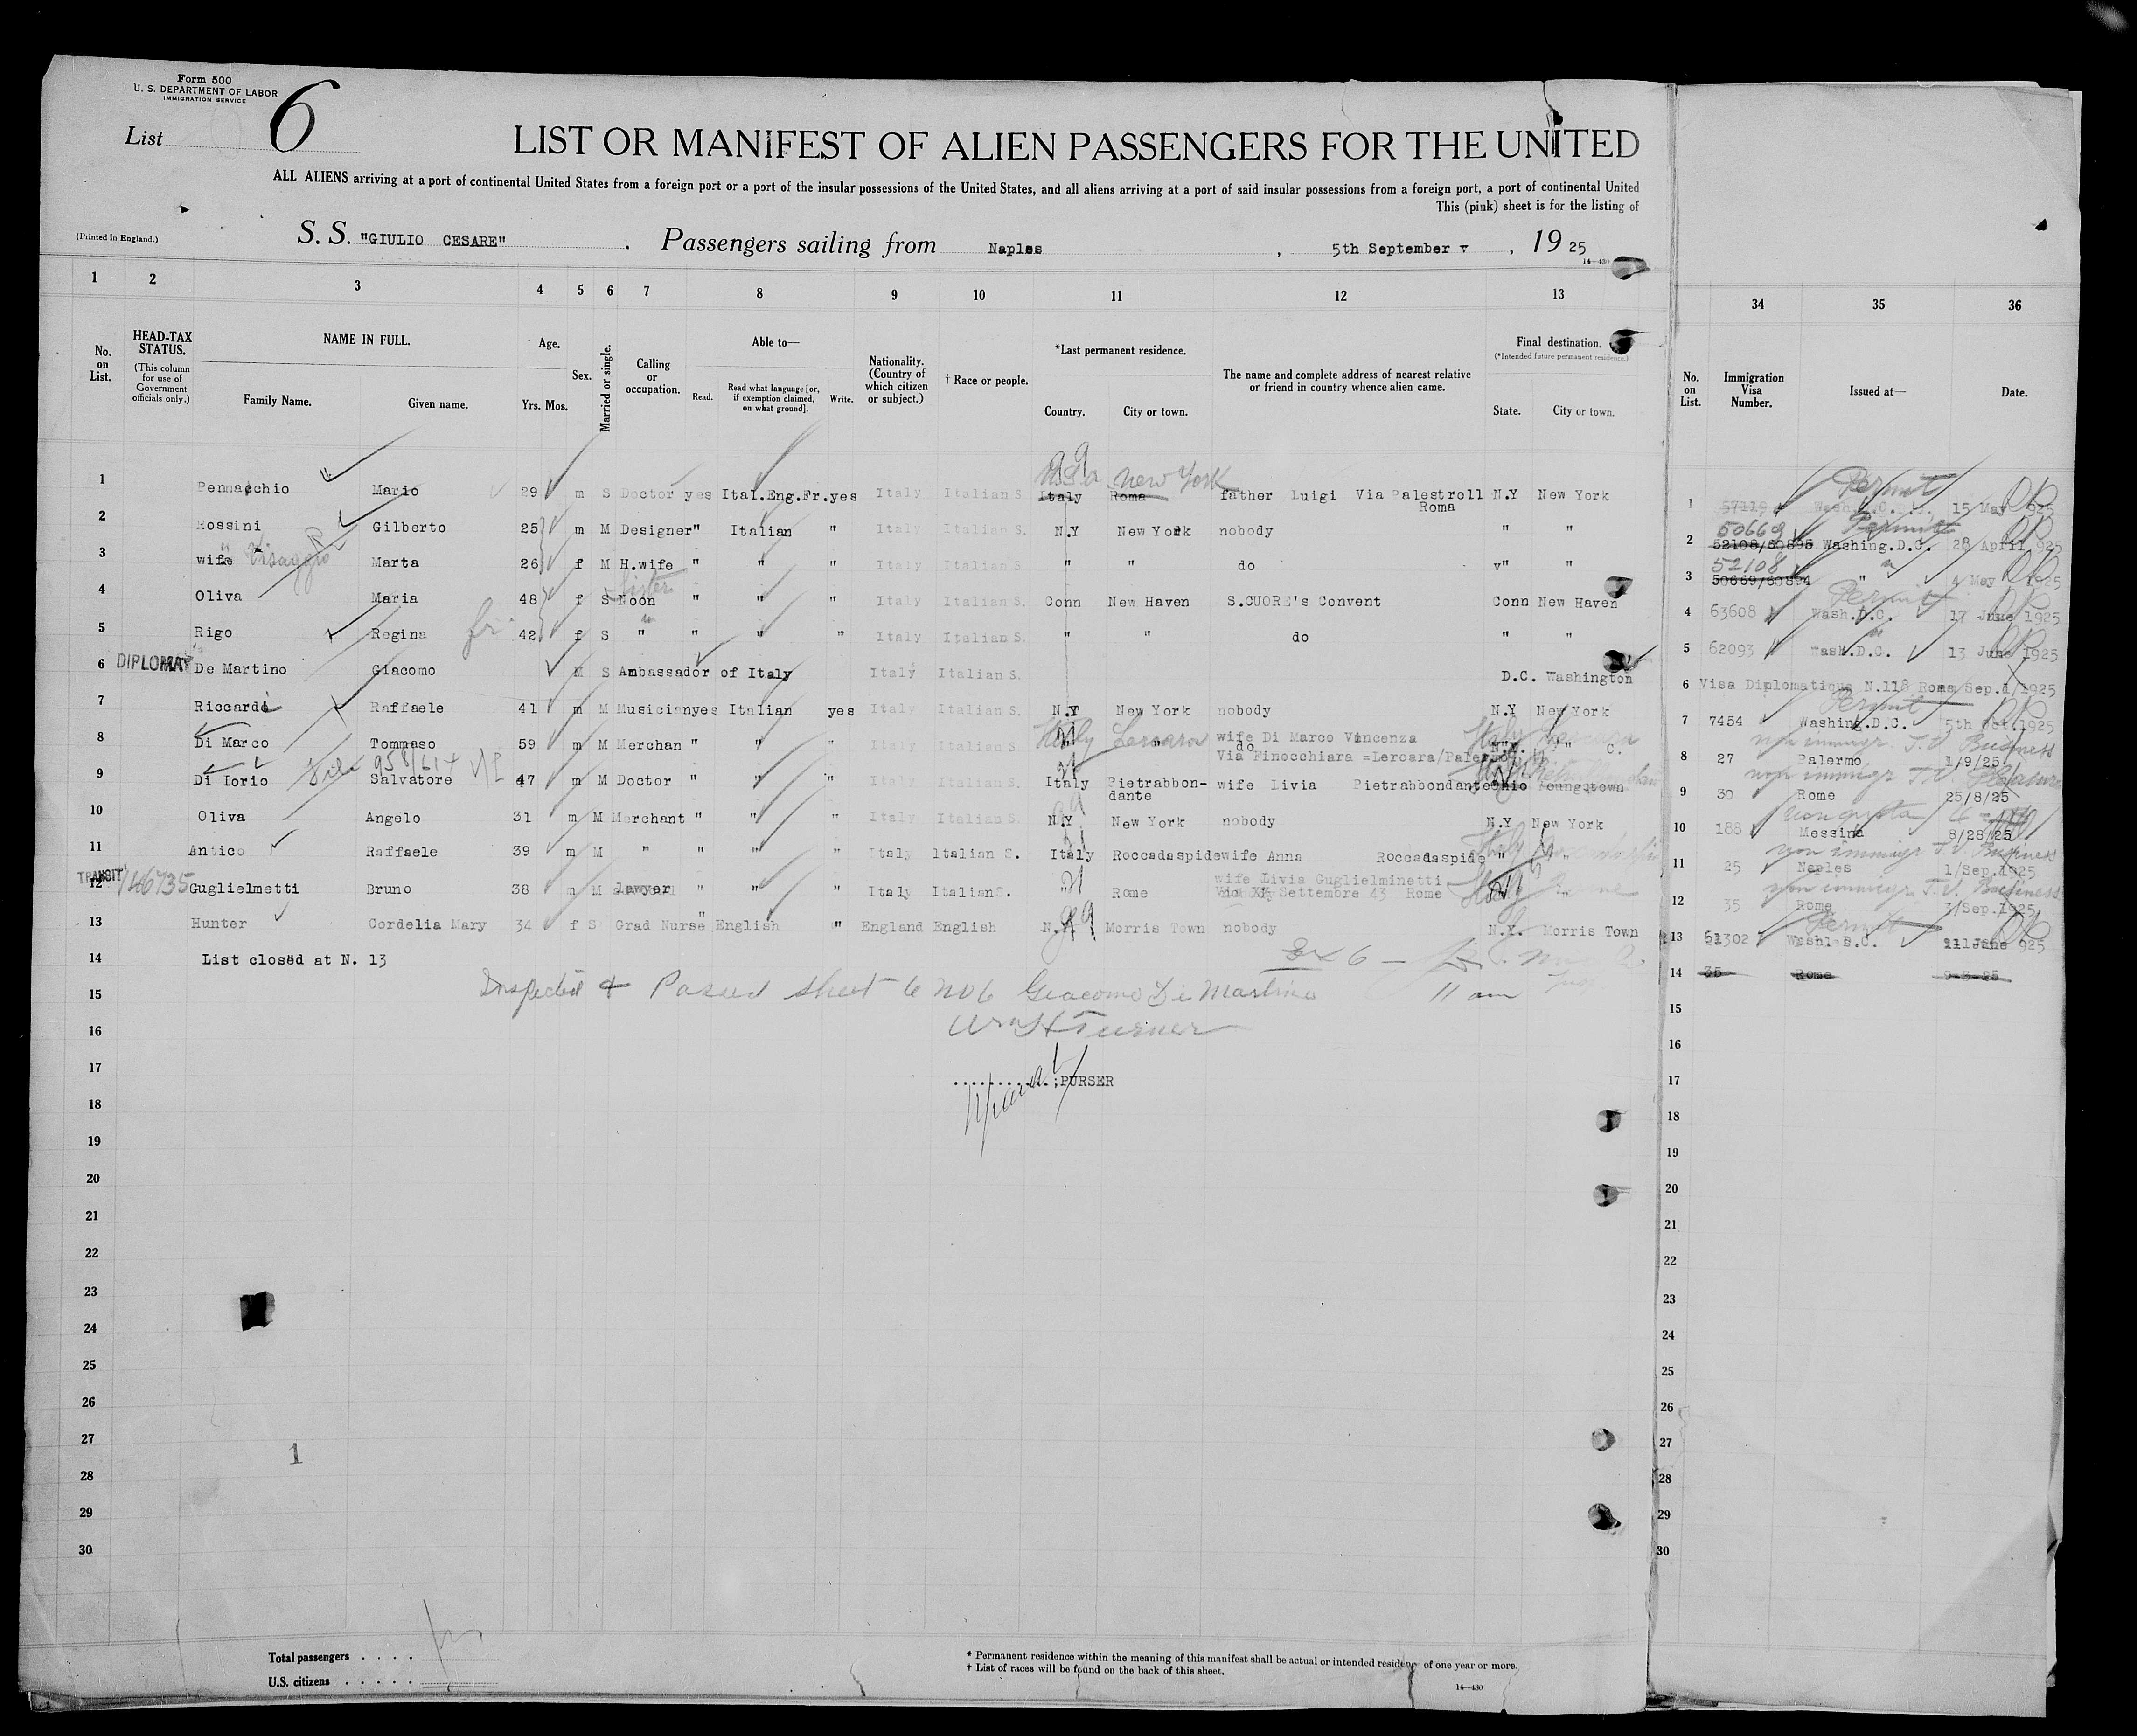 Form 500
U. S. DEPARTMENT OF LABOR
IMMIGRATION SERVICE
List 6
LIST OR MANIFEST OF ALIEN PASSENGERS FOR THE UNITED
ALL ALIENS arriving at a port of continental United States from a foreign port or a port of the insular possessions of the United States, and all aliens arriving at a port of said insular possessions from a foreign port, a port of continental United
This (pink) sheet is for the listing of
(Printed in England.)
S. S. "GIULIO CESARE" . Passengers sailing from Naples , 5th September , 19 25
14-430
1 2 3 4 5 6 7 8 9 10 11 12 13 34 35 36
No. on List.
HEAD-TAX STATUS.
(This column for use of Government officials only.)
NAME IN FULL.
Family Name. Given name.
Age.
Yrs. Mos.
Sex.
Married or single.
Calling or occupation.
Able to—
Read. Read what language [or, if exemption claimed, on what ground]. Write.
Nationality. (Country of which citizen or subject.)
† Race or people.
*Last permanent residence.
Country. City or town.
The name and complete address of nearest relative or friend in country whence alien came.
Final destination.
(*Intended future permanent residence.)
State. City or town.
No. on List.
Immigration Visa Number.
Issued at—
Date.
U.S.a. New York Permit
1 Pennacchio Mario 29 m S Doctor yes Ital.Eng.Fr.yes Italy Italian S. Italy Roma father Luigi Via Palestroll Roma N.Y New York 1 57119 Wash.D.C. 15 May 1925
50669 Permit
2 Rossini Gilberto 25 m M Designer " Italian " Italy Italian S. N.Y New York nobody " " 2 52108/50895 Washing.D.C. 28 April 1925
" Visaggio 52108
3 wife Marta 26 f M H.wife " " " Italy Italian S. " " do " " 3 50669/60894 " 4 May 1925
Sister Permit
4 Oliva Maria 48 f S Noon " " " Italy Italian S. Conn New Haven S.CUORE's Convent Conn New Haven 4 63608 Wash.D.C. 17 June 1925
5 Rigo Regina 42 f S " " " " Italy Italian S. " " do " " 5 62093 Wash.D.C. 13 June 1925
6 DIPLOMAT De Martino Giacomo M S Ambassador of Italy Italy Italian S. D.C. Washington 6 Visa Diplomatique N.118 Roma Sep.1/1925
Permit
7 Riccardi Raffaele 41 m M Musician yes Italian yes Italy Italian S. N.Y New York nobody N.Y New York 7 7454 Washing.D.C. 5th Oct.1925
Italy Lercara Italy Lercara non immigr. T.V. Business
8 Di Marco Tommaso 59 m M Merchan " " " Italy Italian S. " wife Di Marco Vincenza do Via Finocchiara =Lercara/Palermo N.Y. " 8 27 Palermo 1/9/25
File 958/614 non immigr T.V. Pleasure
9 Di Iorio Salvatore 47 m M Doctor " " " Italy Italian S. Italy Pietrabbondante wife Livia Pietrabbondante Ohio Youngstown 9 30 Rome 25/8/25
10 Oliva Angelo 31 m M Merchant " " " Italy Italian S. N.Y New York nobody N.Y New York 10 188 Messina 8/28/25
non immigr T.V. Business
11 Antico Raffaele 39 m M " " " " Italy Italian S. Italy Roccadaspide wife Anna Roccadaspide " " 11 25 Naples 1/Sep.1925
non immigr T.V. Business
12 TRANSIT 146735 Guglielmetti Bruno 38 m M lawyer " " " Italy Italian S. " Rome wife Livia Guglielminetti Via XX Settembre 43 Rome Italy Rome 12 35 Rome 3/Sep.1925
Permit
13 Hunter Cordelia Mary 34 f S Grad Nurse " English " England English N.Y Morris Town nobody N.Y. Morris Town 13 61302 Wash.D.C. 11 June 925
14 List closed at N. 13 14 35 Rome 9-3-25
Inspected & Passed sheet 6 No 6 Giacomo De Martino 11 am
Wm H Turner
...........;PURSER
15 15
16 16
17 17
18 18
19 19
20 20
21 21
22 22
23 23
24 24
25 25
26 26
27 27
28 28
29 29
30 30
1
Total passengers . . . .
U.S. citizens . . . . .
* Permanent residence within the meaning of this manifest shall be actual or intended residence of one year or more.
† List of races will be found on the back of this sheet.
14-430